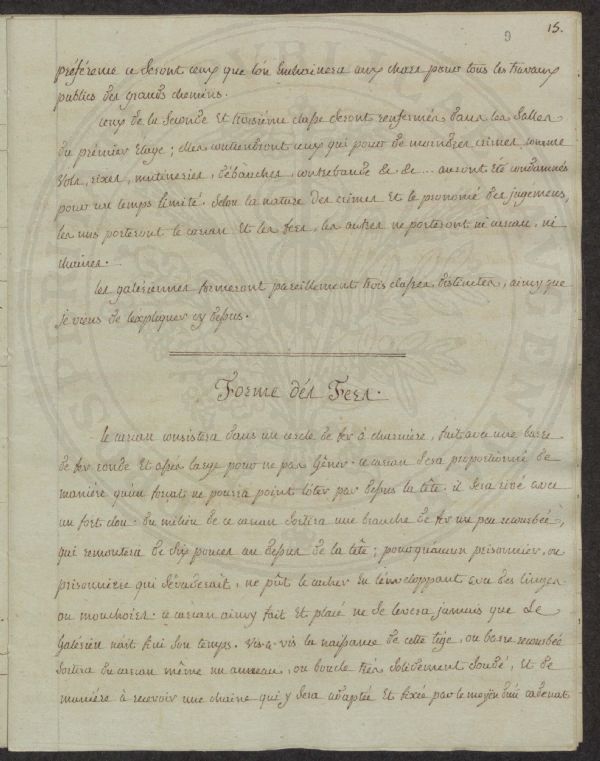 9 15.
préférence ce seront ceux que l'on enchainera aux chars pour tous les travaux
publics des grands chemins.
ceux de la seconde et troisième classe seront renfermés dans les salles
du prémier étage; elles contiendront ceux qui pour de moindres crimes comme
vols, rixes, mutineries, débauches, contrebande &c &c ... auront été condamnés
pour un temps limité. Selon la nature des crimes et le prononcé des jugemens,
les uns porteront le carcan et les fers, les autres ne porteront ni carcan, ni
chaines.
les galériennes formeront pareillement trois classes distinctes, ainsy que
je viens de l'expliquer cy dessus.
Forme dés Fers.
le carcan consistera dans un cercle de fer à charnière, fait avec une barre
de fer ronde et assés large pour ne pas gêner. ce carcan sera proportionné de
manière qu'un forçat ne pourra point l'ôter par dessus la tête. il sera rivé avec
un fort clou. du milieu de ce carcan sortira une branche de fer un peu recourbée,
qui remontera de dix pouces au dessus de la tête; pour qu'aucun prisonnier, ou
prisonnière qui s'évaderait, ne pût le cacher en l'enveloppant avec des linges
ou mouchoirs. ce carcan ainsy fait et placé ne se levera jamais que le
Galérien n'ait fini son temps. vis-à-vis la naissance de cette tige, ou barre recourbée
sortira du carcan même un anneau, ou boucle très solidement soudé, et de
manière à recevoir une chaine qui y sera adaptée et fixée par le moyen d'un cadenat